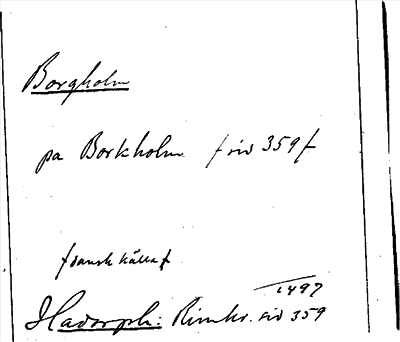 Borgholm
pa Borkholm / sid 359 /
/ dansk källa /
1497
Hadorph: Rimkr. sid 359